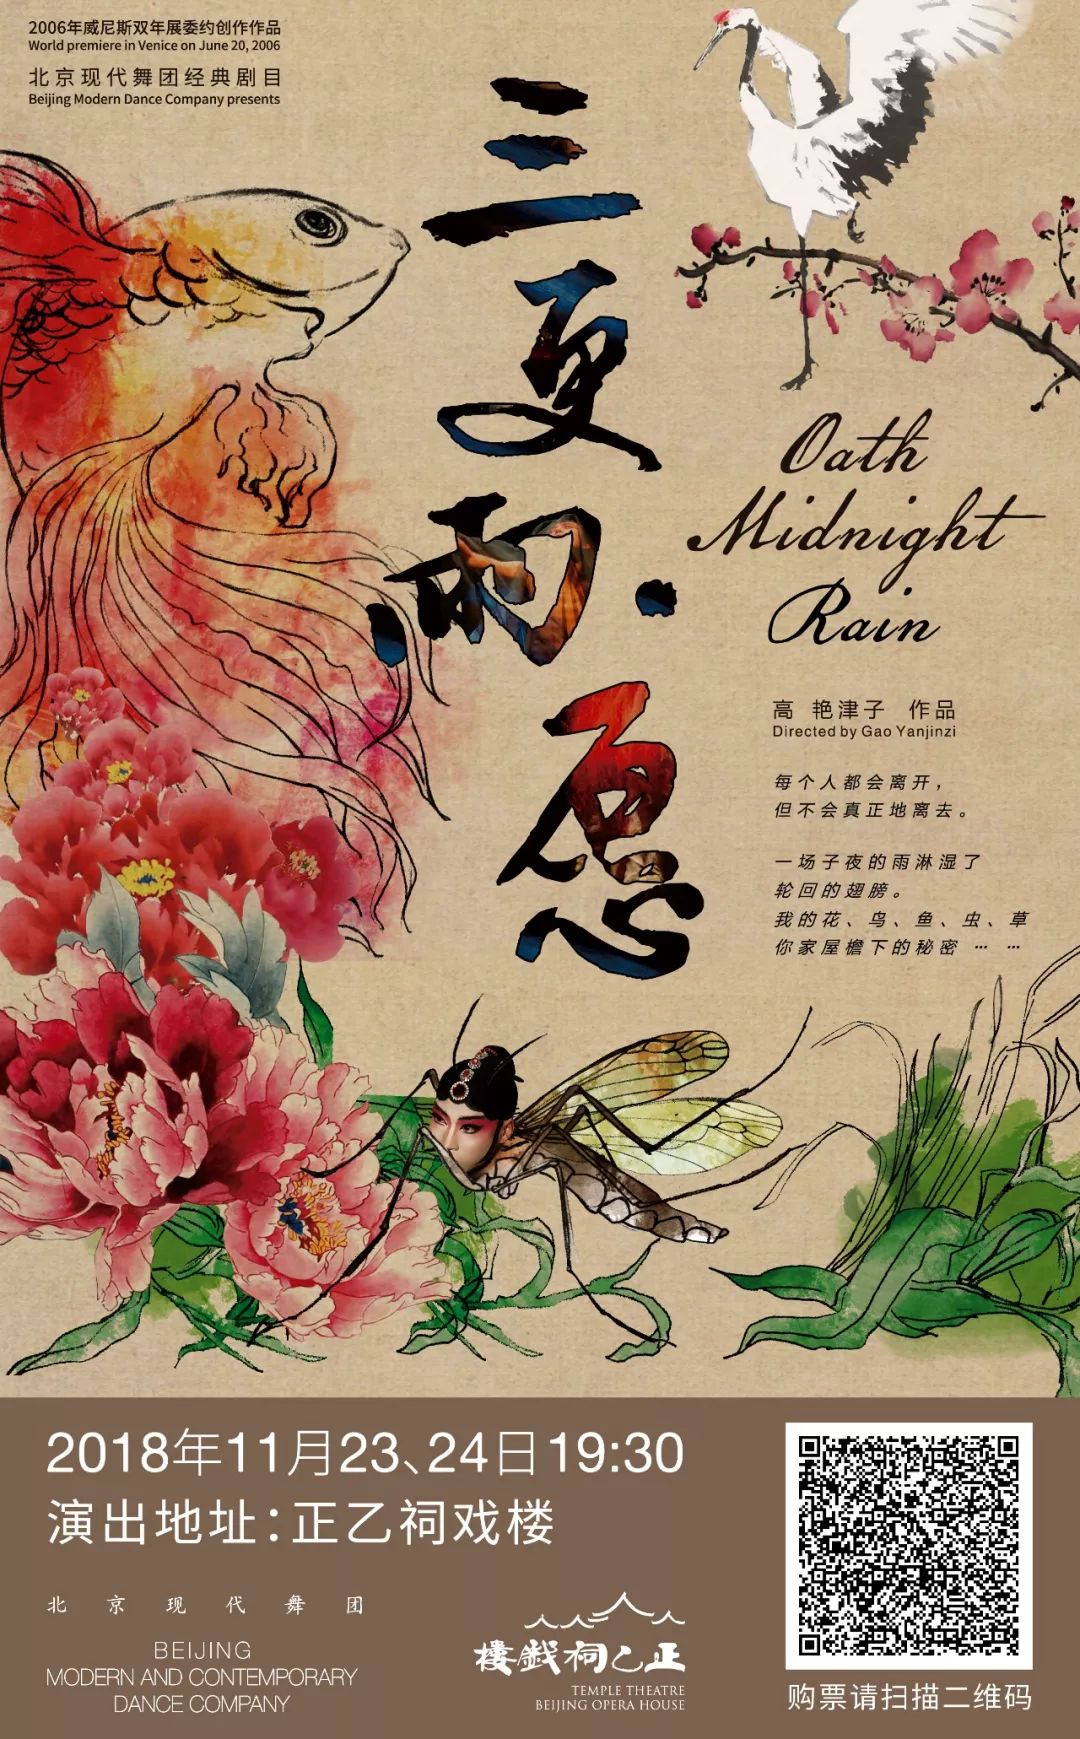 2006年威尼斯双年展委约创作作品
World premiere in Venice on June 20, 2006
北京现代舞团经典剧目
Beijing Modern Dance Company presents
三更雨·愿
Oath
Midnight
Rain
高 艳津子 作品
Directed by Gao Yanjinzi
每个人都会离开，
但不会真正地离去。
一场子夜的雨淋湿了
轮回的翅膀。
我的花、鸟、鱼、虫、草
你家屋檐下的秘密 … …
2018年11月23、24日19:30
演出地址：正乙祠戏楼
北京现代舞团
BEIJING
MODERN AND CONTEMPORARY
DANCE COMPANY
樓戲祠乙正
TEMPLE THEATRE
BEIJING OPERA HOUSE
购票请扫描二维码